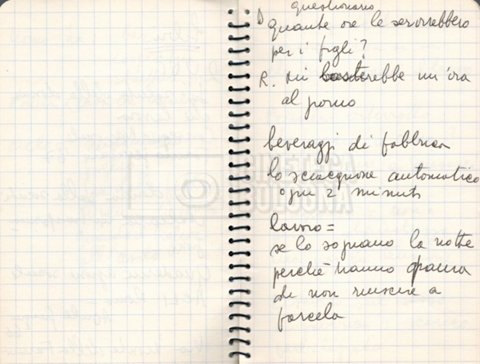 questionario
D quante ore le servirebbero
per i figli?
R. Mi basterebbe un'ora
al giorno
beveraggi di fabbrica
lo sciacquone automatico
ogni 2 minuti
lavoro =
se lo sognano la notte
perchè hanno paura
di non riuscire a
farcela
CINETECA
BOLOGNA